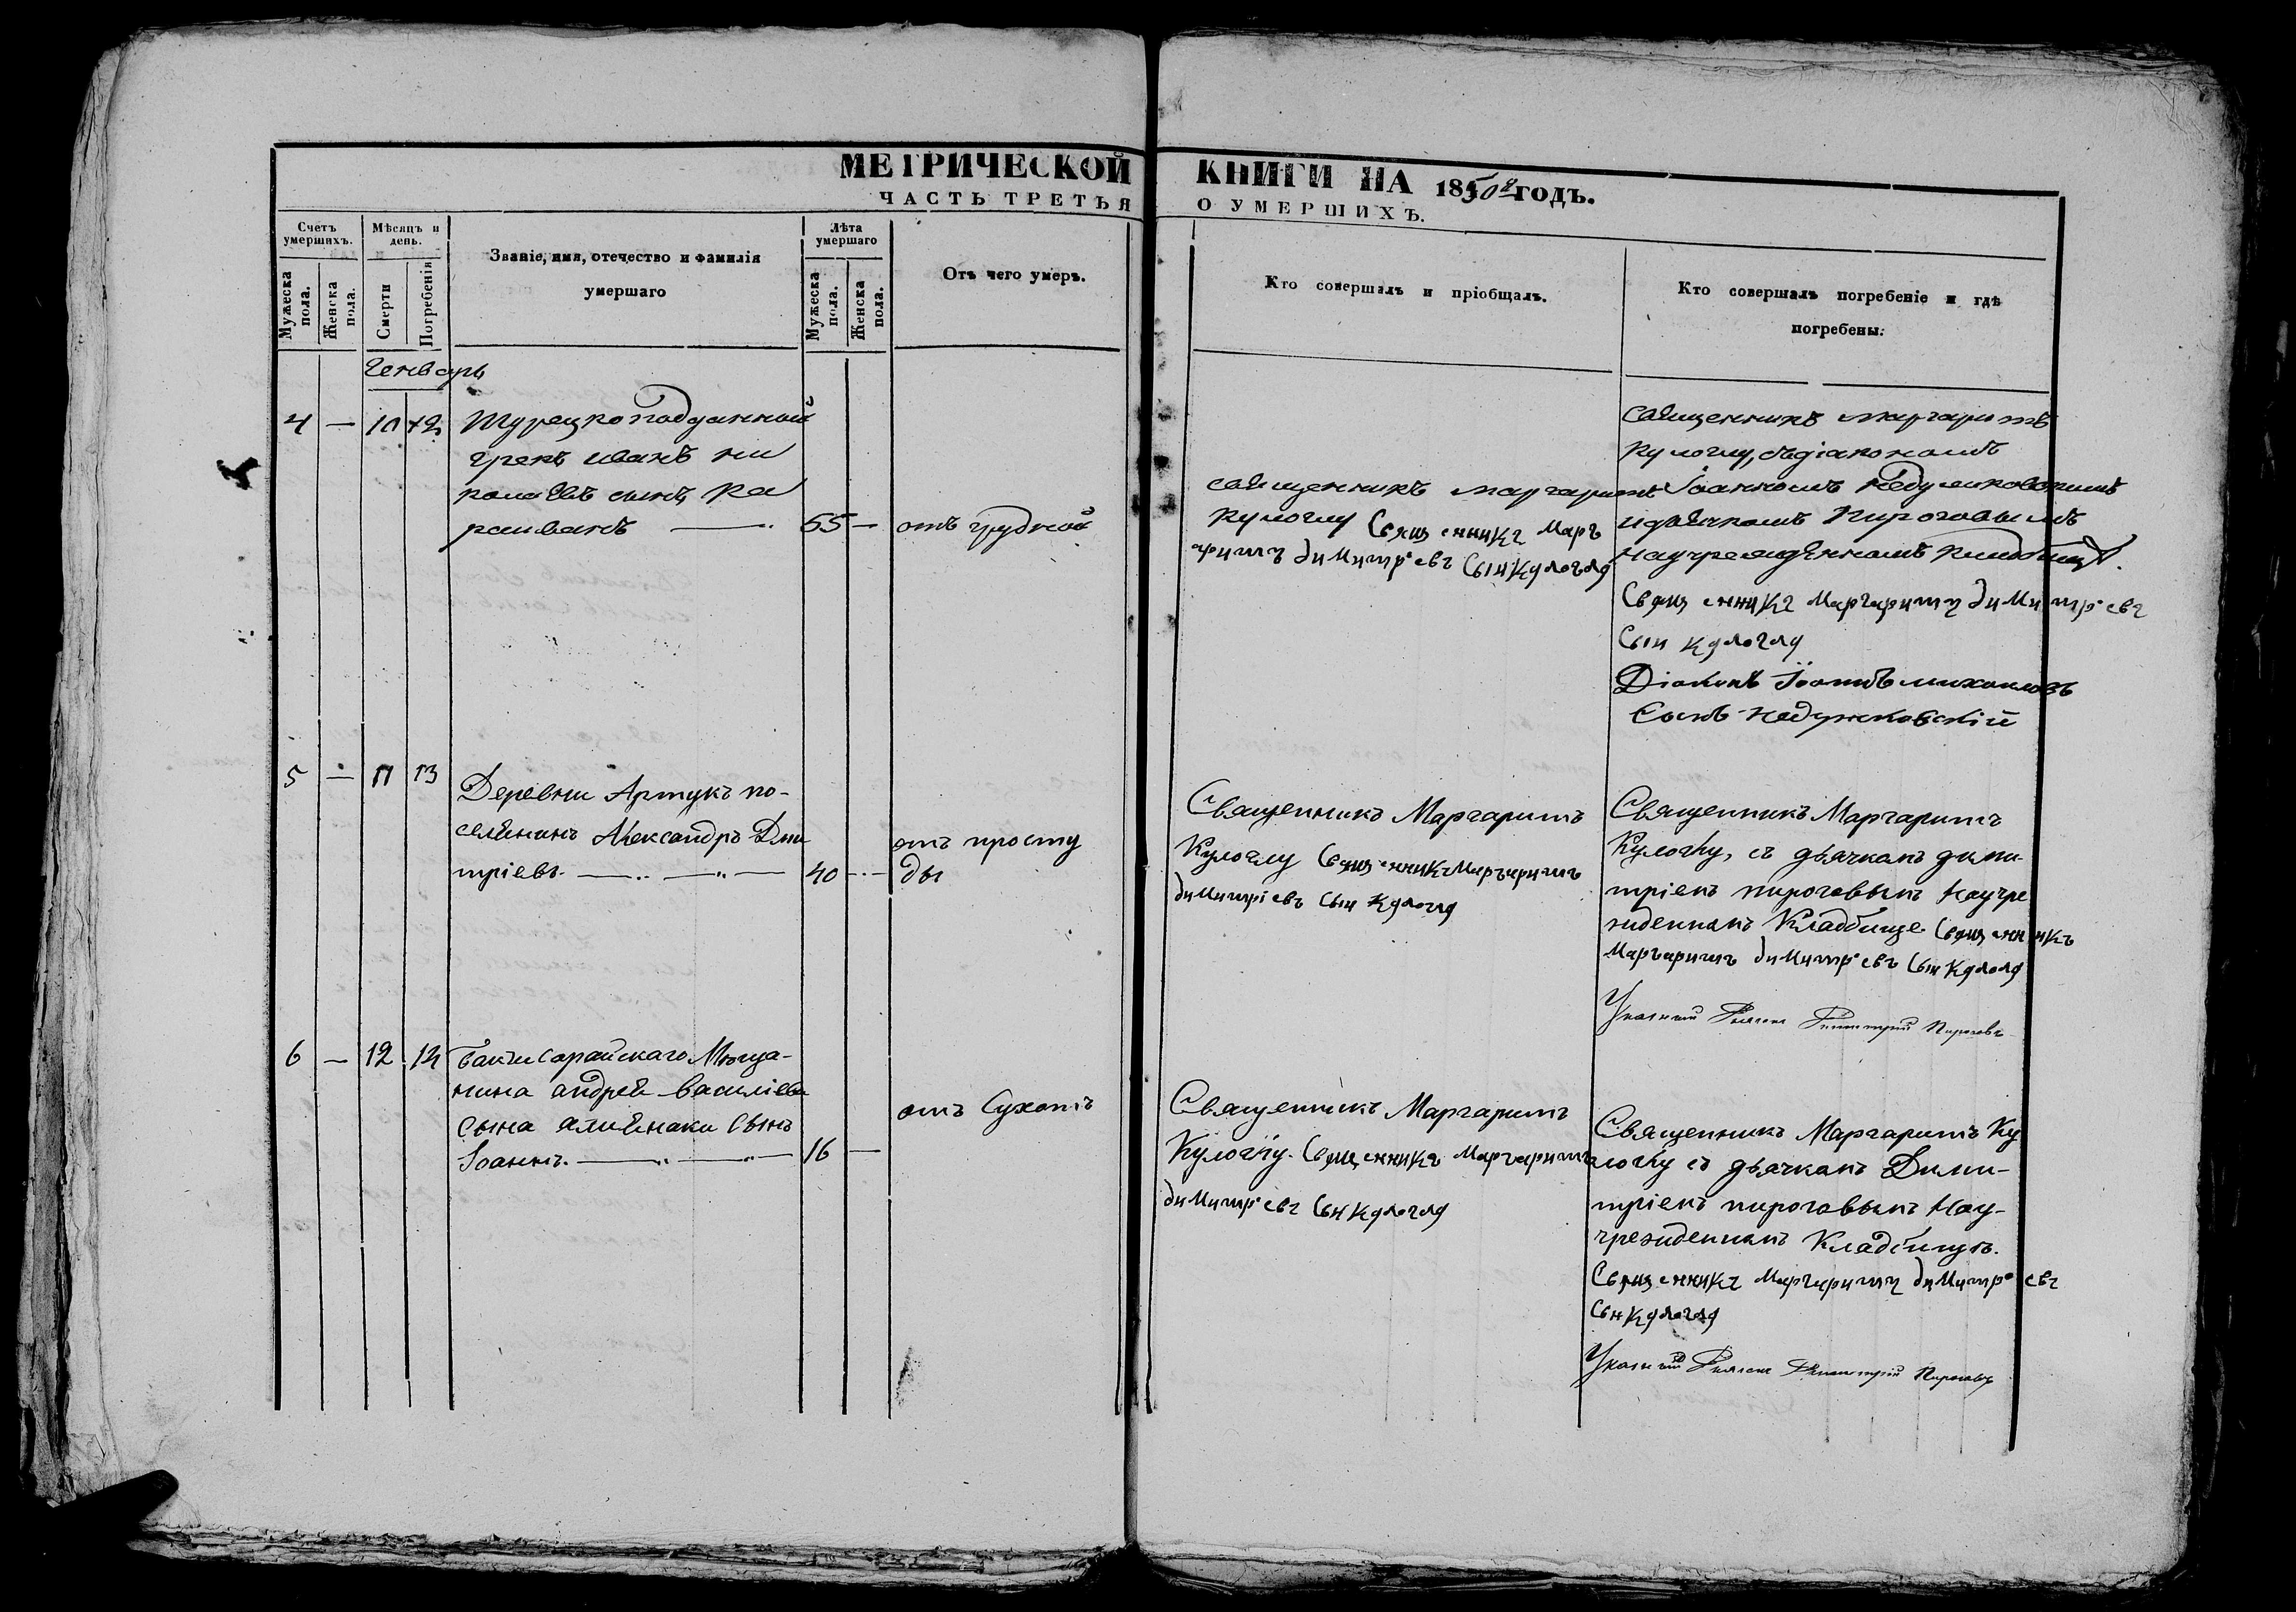 МЕТРИЧЕСКОЙ КНИГИ НА 1850й годъ.
ЧАСТЬ ТРЕТЬЯ О УМЕРШИХЪ.
Счетъ умершихъ.
Мѣсяцъ и день.
Званіе, имя, отечество и фамилія
умершаго
Лѣта умершаго
Отъ чего умеръ.
Кто совершалъ и пріобщалъ.
Кто совершалъ погребеніе и гдѣ
погребены.
Мужеска пола.
Женска пола.
Смерти
Погребенія
Мужеска пола.
Женска пола.
Генварь
4 — 10 12
Турецкоподданный
грекъ иванъ ни
колаевъ сынъ Ка
раивановъ — 55 —
отъ грудной
священникъ маргаритъ
кулоглу Священникъ Марг
аритъ димитріевъ Сын Кулоглу
священникъ маргаритъ
кулоглу, съ діакономъ
Іоанномъ Недужковскимъ
и дьячкомъ Пироговымъ
на учрежденномъ кладбищѣ.
Священникъ Маргаритъ димитріевъ
Сын кулоглу
Діаконъ Іоаннъ михаиловъ
Сынъ Недужковскій
5 — 11 13
Деревни Артукъ по-
селянинъ Александръ Дми
тріевъ. — 40 —
отъ просту
ды
Священникъ Маргаритъ
Кулоглу Священникъ Маргаритъ
димитріевъ Сын Кулоглу
Священникъ Маргаритъ
Кулоглу, съ дьячкомъ дими-
тріемъ пироговымъ на учре
жденномъ Кладбище Священникъ
Маргаритъ димитріевъ Сын Кулоглу
Указный Дьячекъ Димитрій Пироговъ
6 — 12 14
Бакчисарайскаго Мѣща-
нина андрея василіева
сына Сынъ
Іоаннъ. — 16 —
отъ Сухотъ
Священникъ Маргаритъ
Кулоглу. Священникъ Маргаритъ
димитріевъ Сын Кулоглу
Священникъ Маргаритъ Ку
логлу съ дьячкомъ Дими-
тріемъ пироговымъ На у-
чрежденномъ Кладбищѣ.
Священникъ Маргаритъ димитріевъ
Сын Кулоглу
Указный Дьячекъ Димитрій Пироговъ